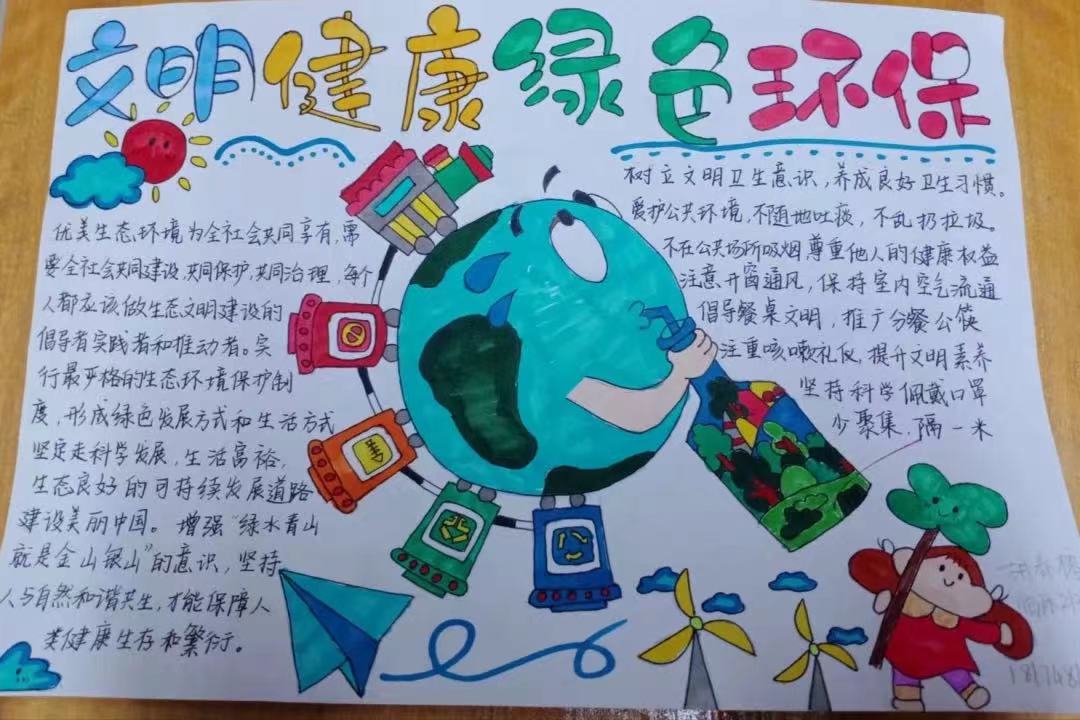 文明健康绿色环保
优美生态环境为全社会共同享有,需
要全社会共同建设,共同保护,共同治理,每个
人都应该做生态文明建设的
倡导者实践者和推动者。实
行最严格的生态环境保护制
度,形成绿色发展方式和生活方式
坚定走科学发展,生活富裕,
生态良好的可持续发展道路
建设美丽中国。增强“绿水青山
就是金山银山”的意识,坚持
人与自然和谐共生,才能保障人
类健康生存和繁衍。
树立文明卫生意识,养成良好卫生习惯。
爱护公共环境,不随地吐痰,不乱扔垃圾。
不在公共场所吸烟尊重他人的健康权益
注意开窗通风,保持室内空气流通
倡导餐桌文明,推广分餐公筷
注重咳嗽礼仪,提升文明素养
坚持科学佩戴口罩
少聚集,隔一米
善